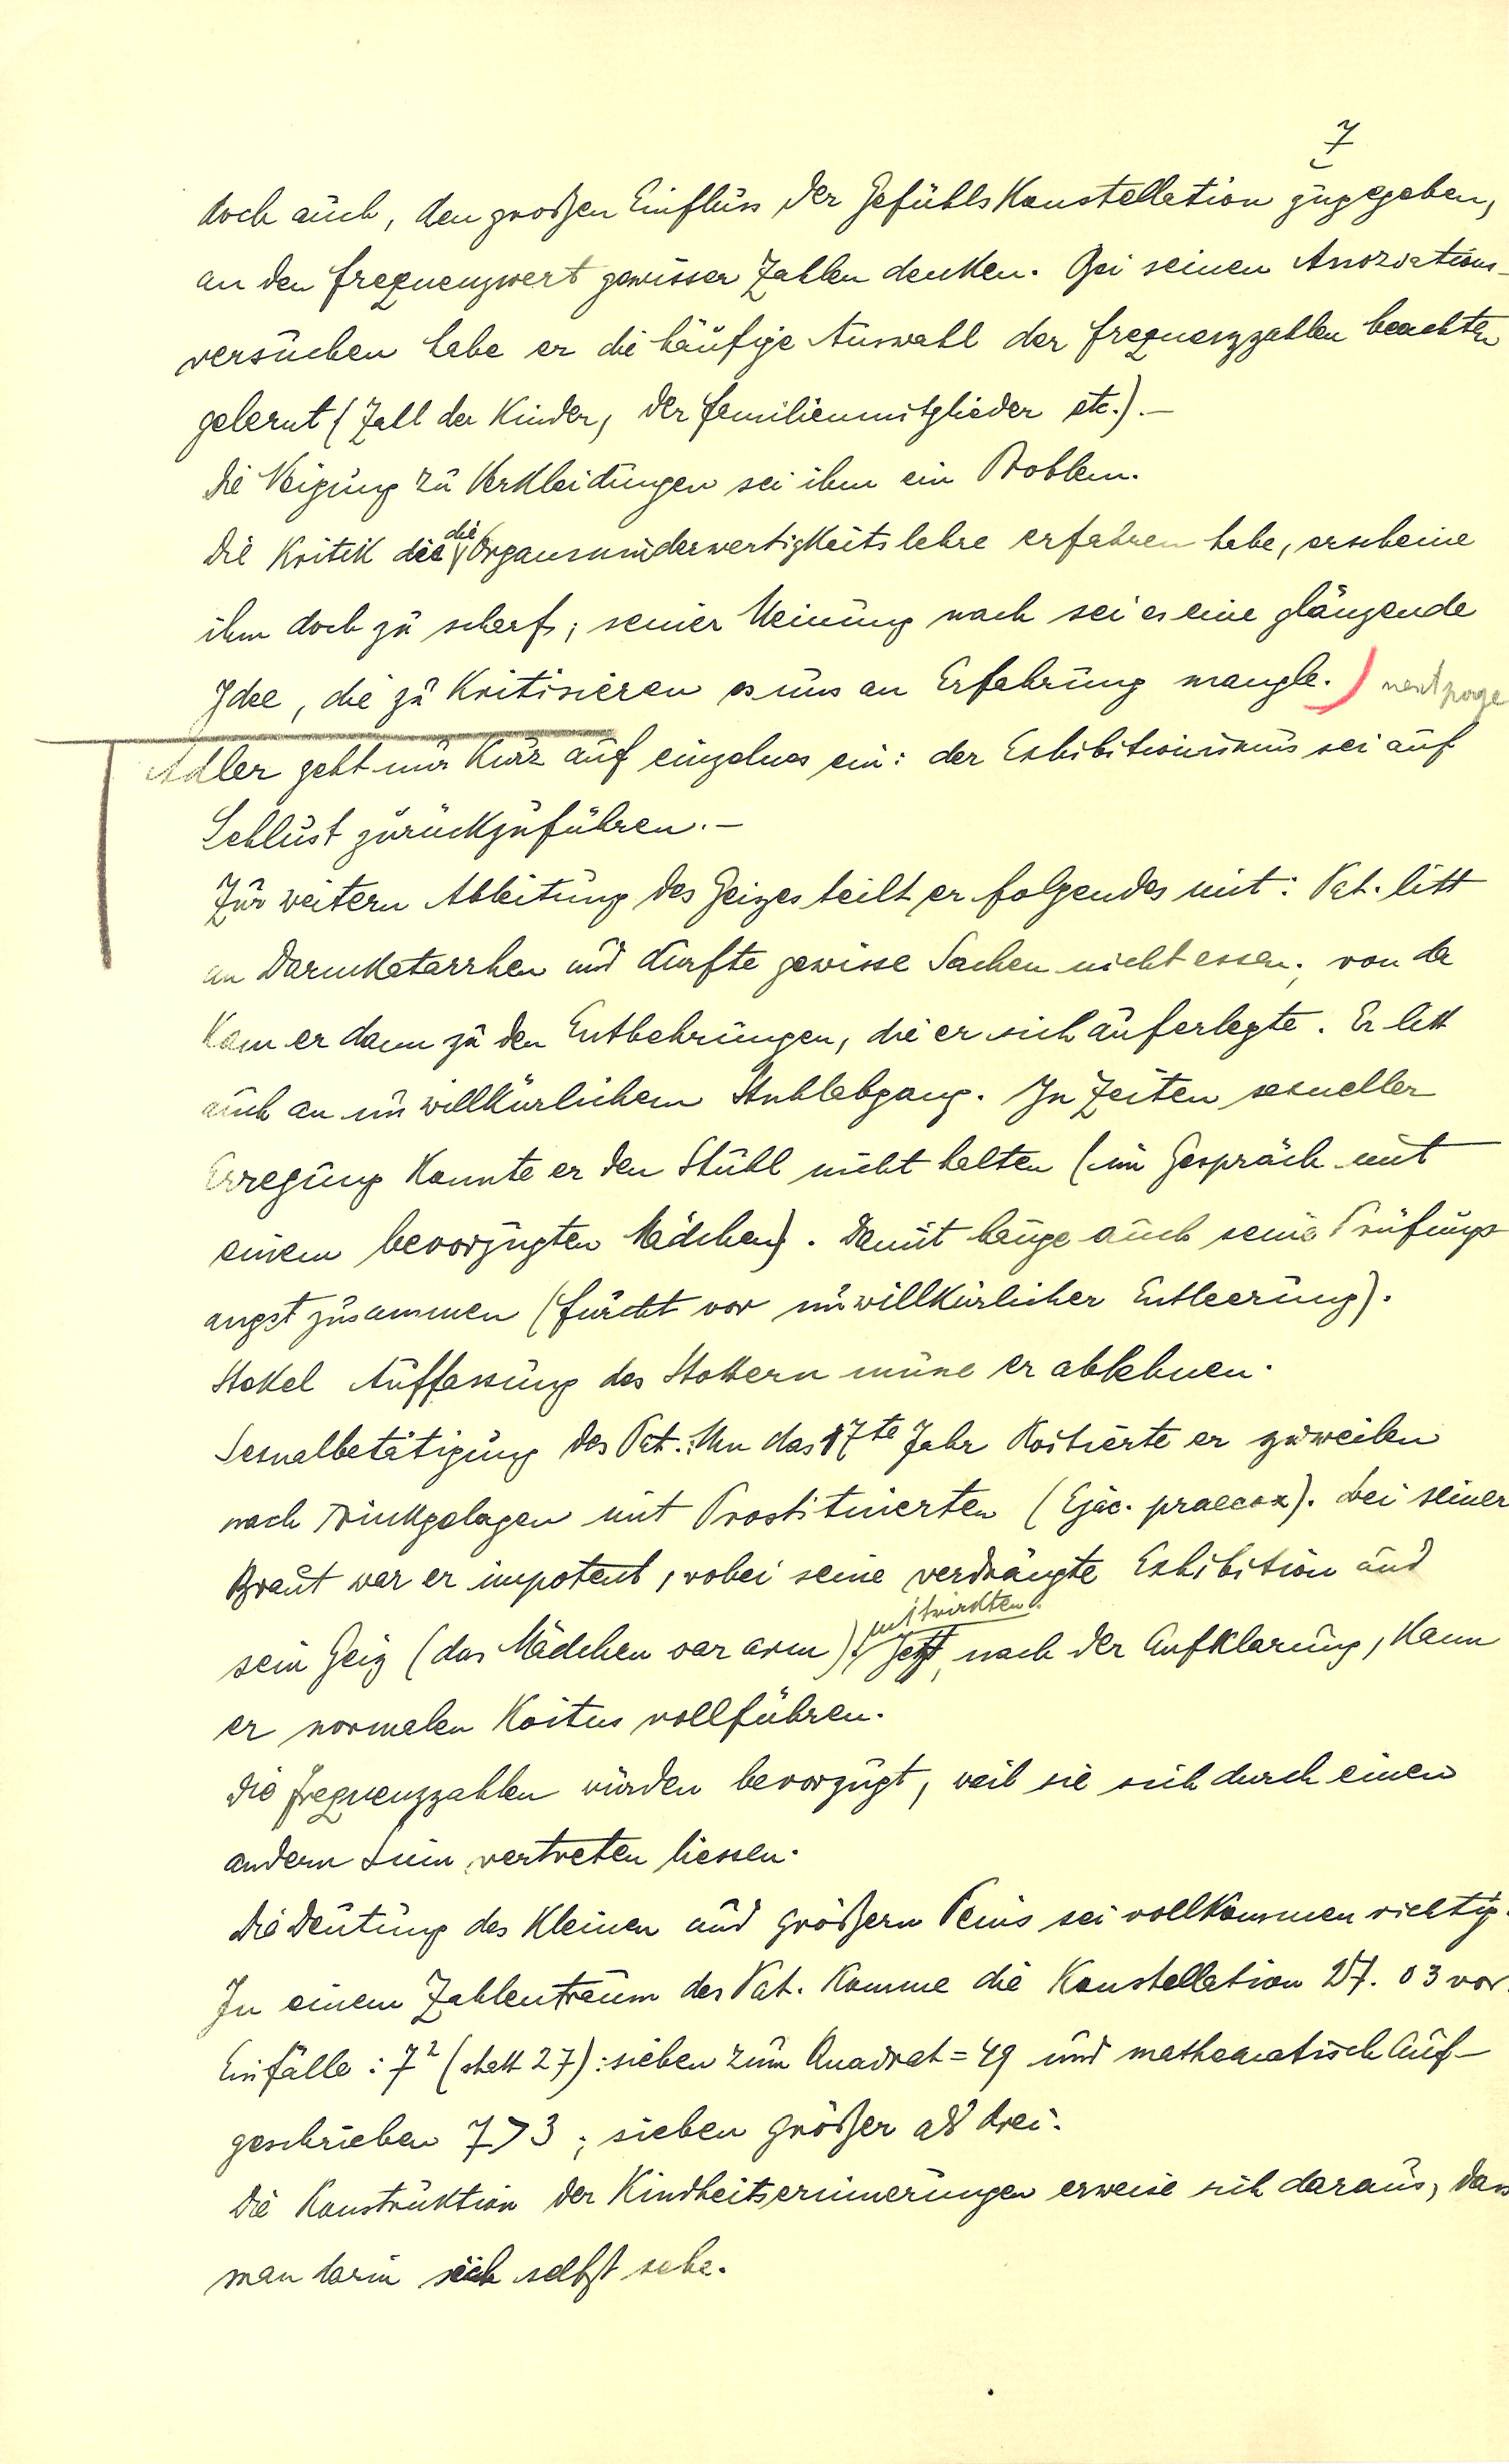 7
doch auch, den großen Einfluss der Gefühlskonstellation zugegeben,
an den Frequenzwert gewisser Zahlen denken. Bei seinen Assoziations-
versuchen habe er die häufige Auswahl der Frequenzzahlen beachten
gelernt (Zahl der Kinder, der Familienmitglieder etc.).—
Die Neigung zu Verkleidungen sei ihm ein Problem.
Die Kritik die die Organminderwertigkeitslehre erfahren habe, erscheine
ihm doch zu scharf; seiner Meinung nach sei es eine glänzende
Idee, die zu kritisieren es uns an Erfahrung mangle.) next page
Adler geht nur kurz auf einzelnes ein: der Exhibitionismus sei auf
Sehlust zurückzuführen.—
Zur weitern Ableitung des Geizes teilt er folgendes mit: Pat. litt
an Darmkatarrhen und durfte gewisse Sachen nicht essen; von da
kam er dann zu den Entbehrungen, die er sich auferlegte. Er litt
auch an unwillkürlichem Stuhlabgang. In Zeiten sexueller
Erregung konnte er den Stuhl nicht halten (im Gespräch mit
einem bevorzugten Mädchen). Damit hänge auch seine Prüfungs
angst zusammen (Furcht vor unwillkürlicher Entleerung).
Stekel Auffassung des Stottern müsse er ablehnen.
Sexualbetätigung des Pat.: Um das 17te Jahr koitierte er zuweilen
nach Trinkgelagen mit Prostituierten (Ejac. praecox). Bei seiner
Braut war er impotent, wobei seine verdrängte Exhibition und
sein Geiz (das Mädchen war arm) mitwirkten. Jetzt, nach der Aufklärung, kann
er normalen Koitus vollführen.
Die Frequenzzahlen würden bevorzugt, weil sie sich durch einen
andern Sinn vertreten liessen.
Die Deutung des kleinen und größern Penis sei vollkommen richtig.
In einem Zahlentraum des Pat. komme die Konstellation 27. 03 vor.
Einfälle: 7² (statt 27): sieben zum Quadrat = 49 und mathematisch auf-
geschrieben 7>3; sieben größer als drei.
Die Konstruktion der Kindheitserinnerungen erweise sich daraus, dass
man darin sich selbst sehe.